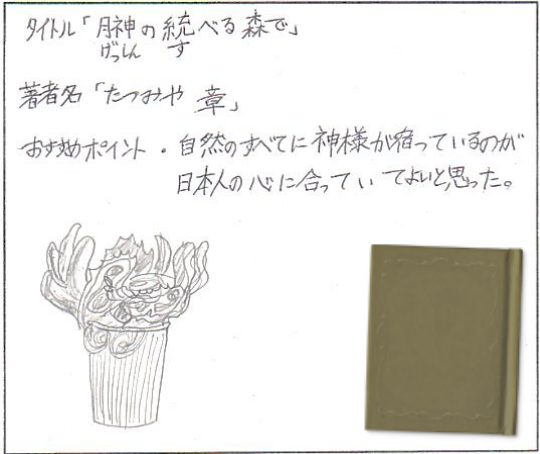 タイトル「月神の統べる森で」
げっしん す
著者名「たつみや 章」
おすすめポイント・自然のすべてに神様が宿っているのが
日本人の心に合っていてよいと思った。